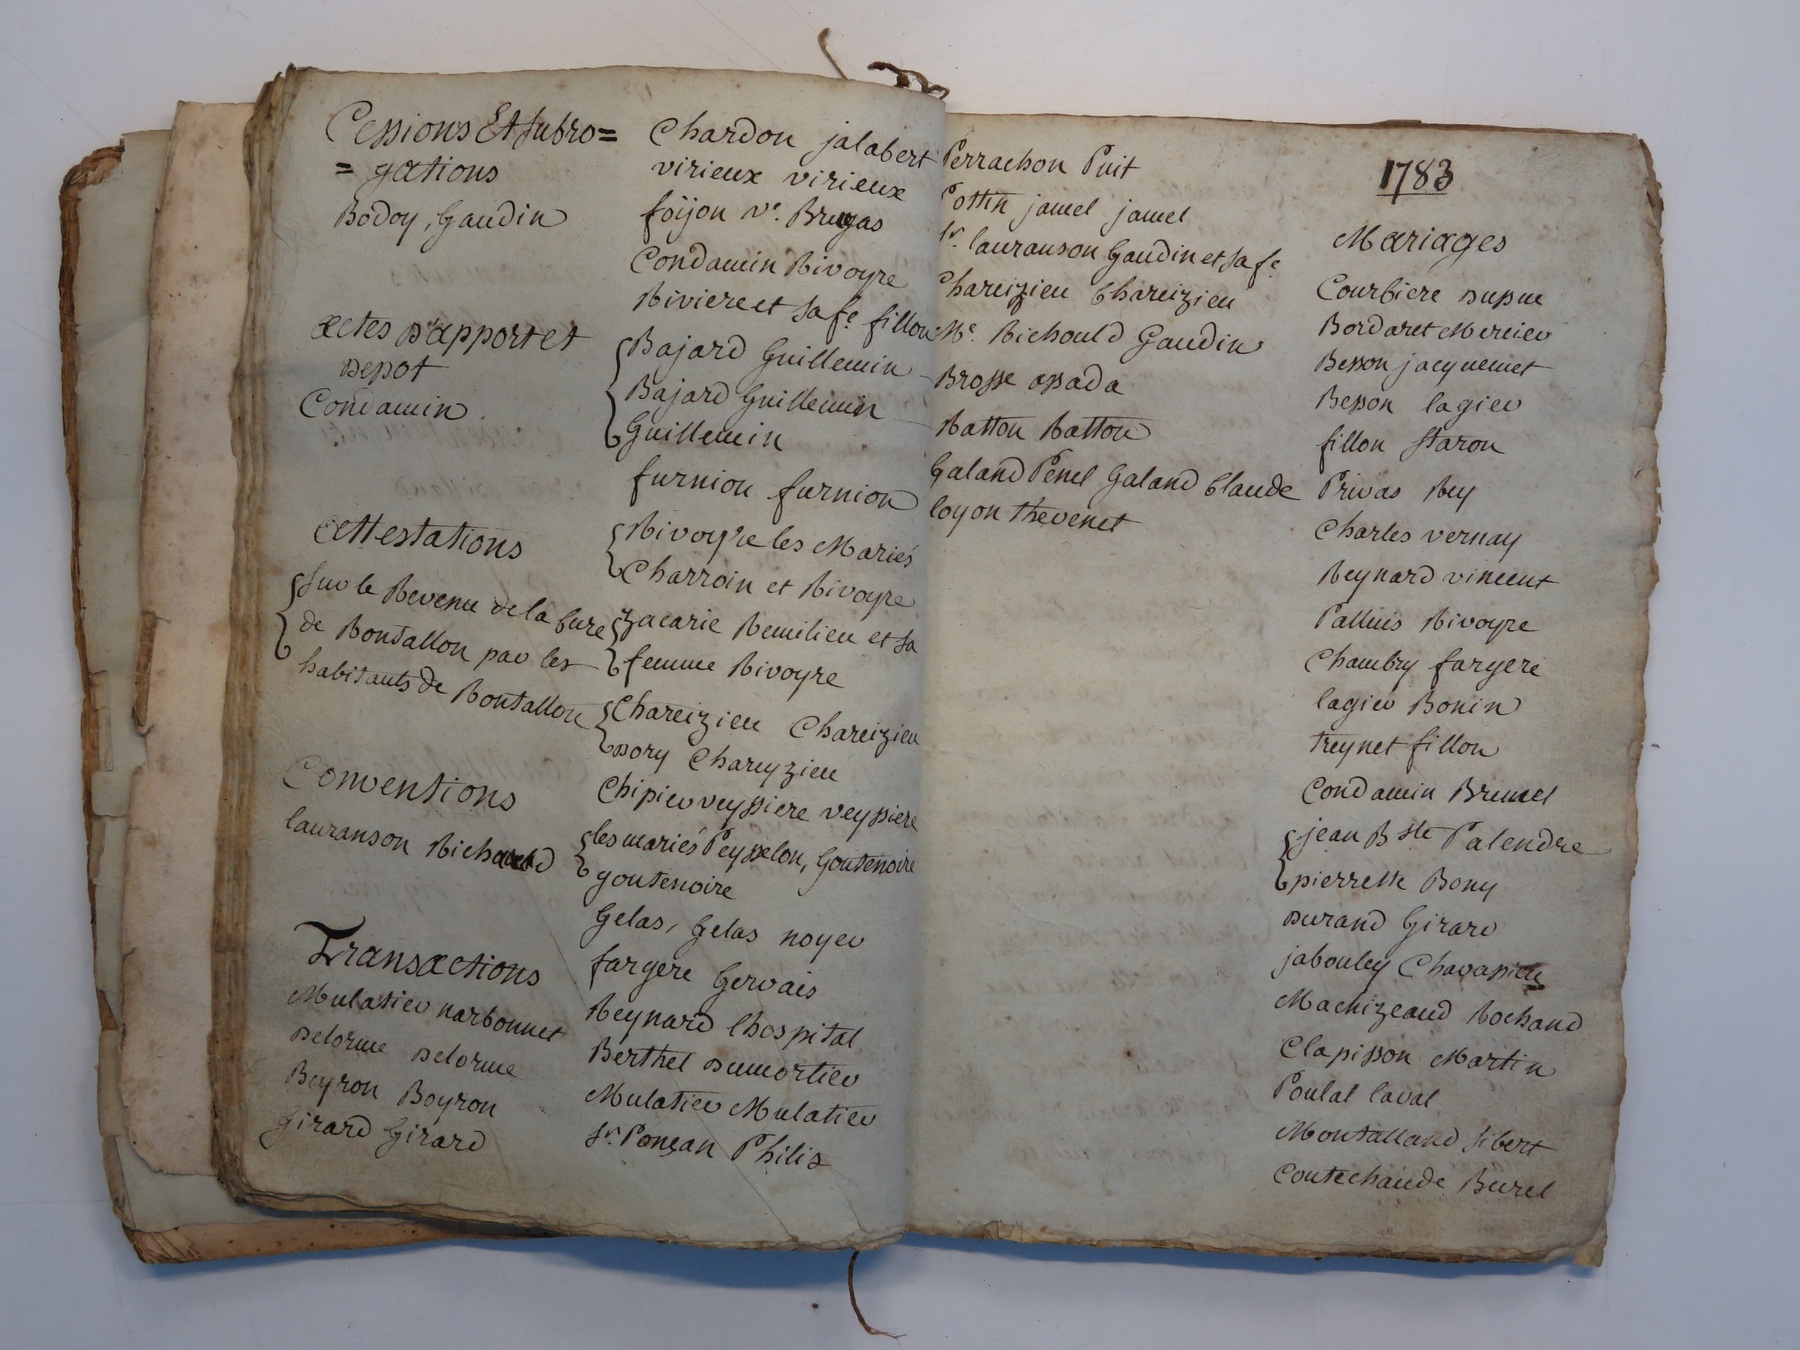 Cessions Et subro=
= gations
Bodoy, Gaudin
actes d'apport et
depot
Condamin
attestations
sur le Revenu de la Cure
de Rontallon par les
habitants de Rontallon
Conventions
lauranson Richould
Transactions
Mulatier narbonnet
Delorme Delorme
Boyron Boyron
Girard Girard
Chardon jalabert
virieux virieux
foijon ve. Brugas
Condamin Rivoyre
Riviere et sa fe. fillon
Bajard Guillemin
Bajard Guillemin
Guillemin
furnion furnion
Rivoyre les Mariés
Charroin et Rivoyre
Zacarie Remilieu et sa
femme Rivoyre
Chareizieu Chareizieu
Dory Chareyzieu
Chipier veyssiere veyssiere
les mariés Peysselon, Goutenoire
goutenoire
Gelas, Gelas noyer
fargere Gervais
Reynard lhospital
Berthel Dumortier
Mulatier Mulatier
sr. Ponçan Philis
Perrachon Puit
Pottin jamel jamel
sr. lauranson Gaudin et sa fe.
Chareizieu Chareizieu
Me. Richould Gaudin
Brosse assada
Ratton Ratton
Galand Penel Galand Claude
loyon thevenet
1783
Mariages
Courbiere Dupue
Bordaret Mercier
Besson jacquemet
Besson lagier
fillon staron
Privas Rey
Charles vernay
Reynard vincent
Palluis Rivoyre
Chambry fargere
lagier Bonin
treynet fillon
Condamin Brunel
jean Bste Palendre
pierrette Bony
Durand Girard
jabouley Chavassieu
Machizeaud Rochand
Clapisson Martin
Poulat laval
Montalland sibert
Coutechaude Burel